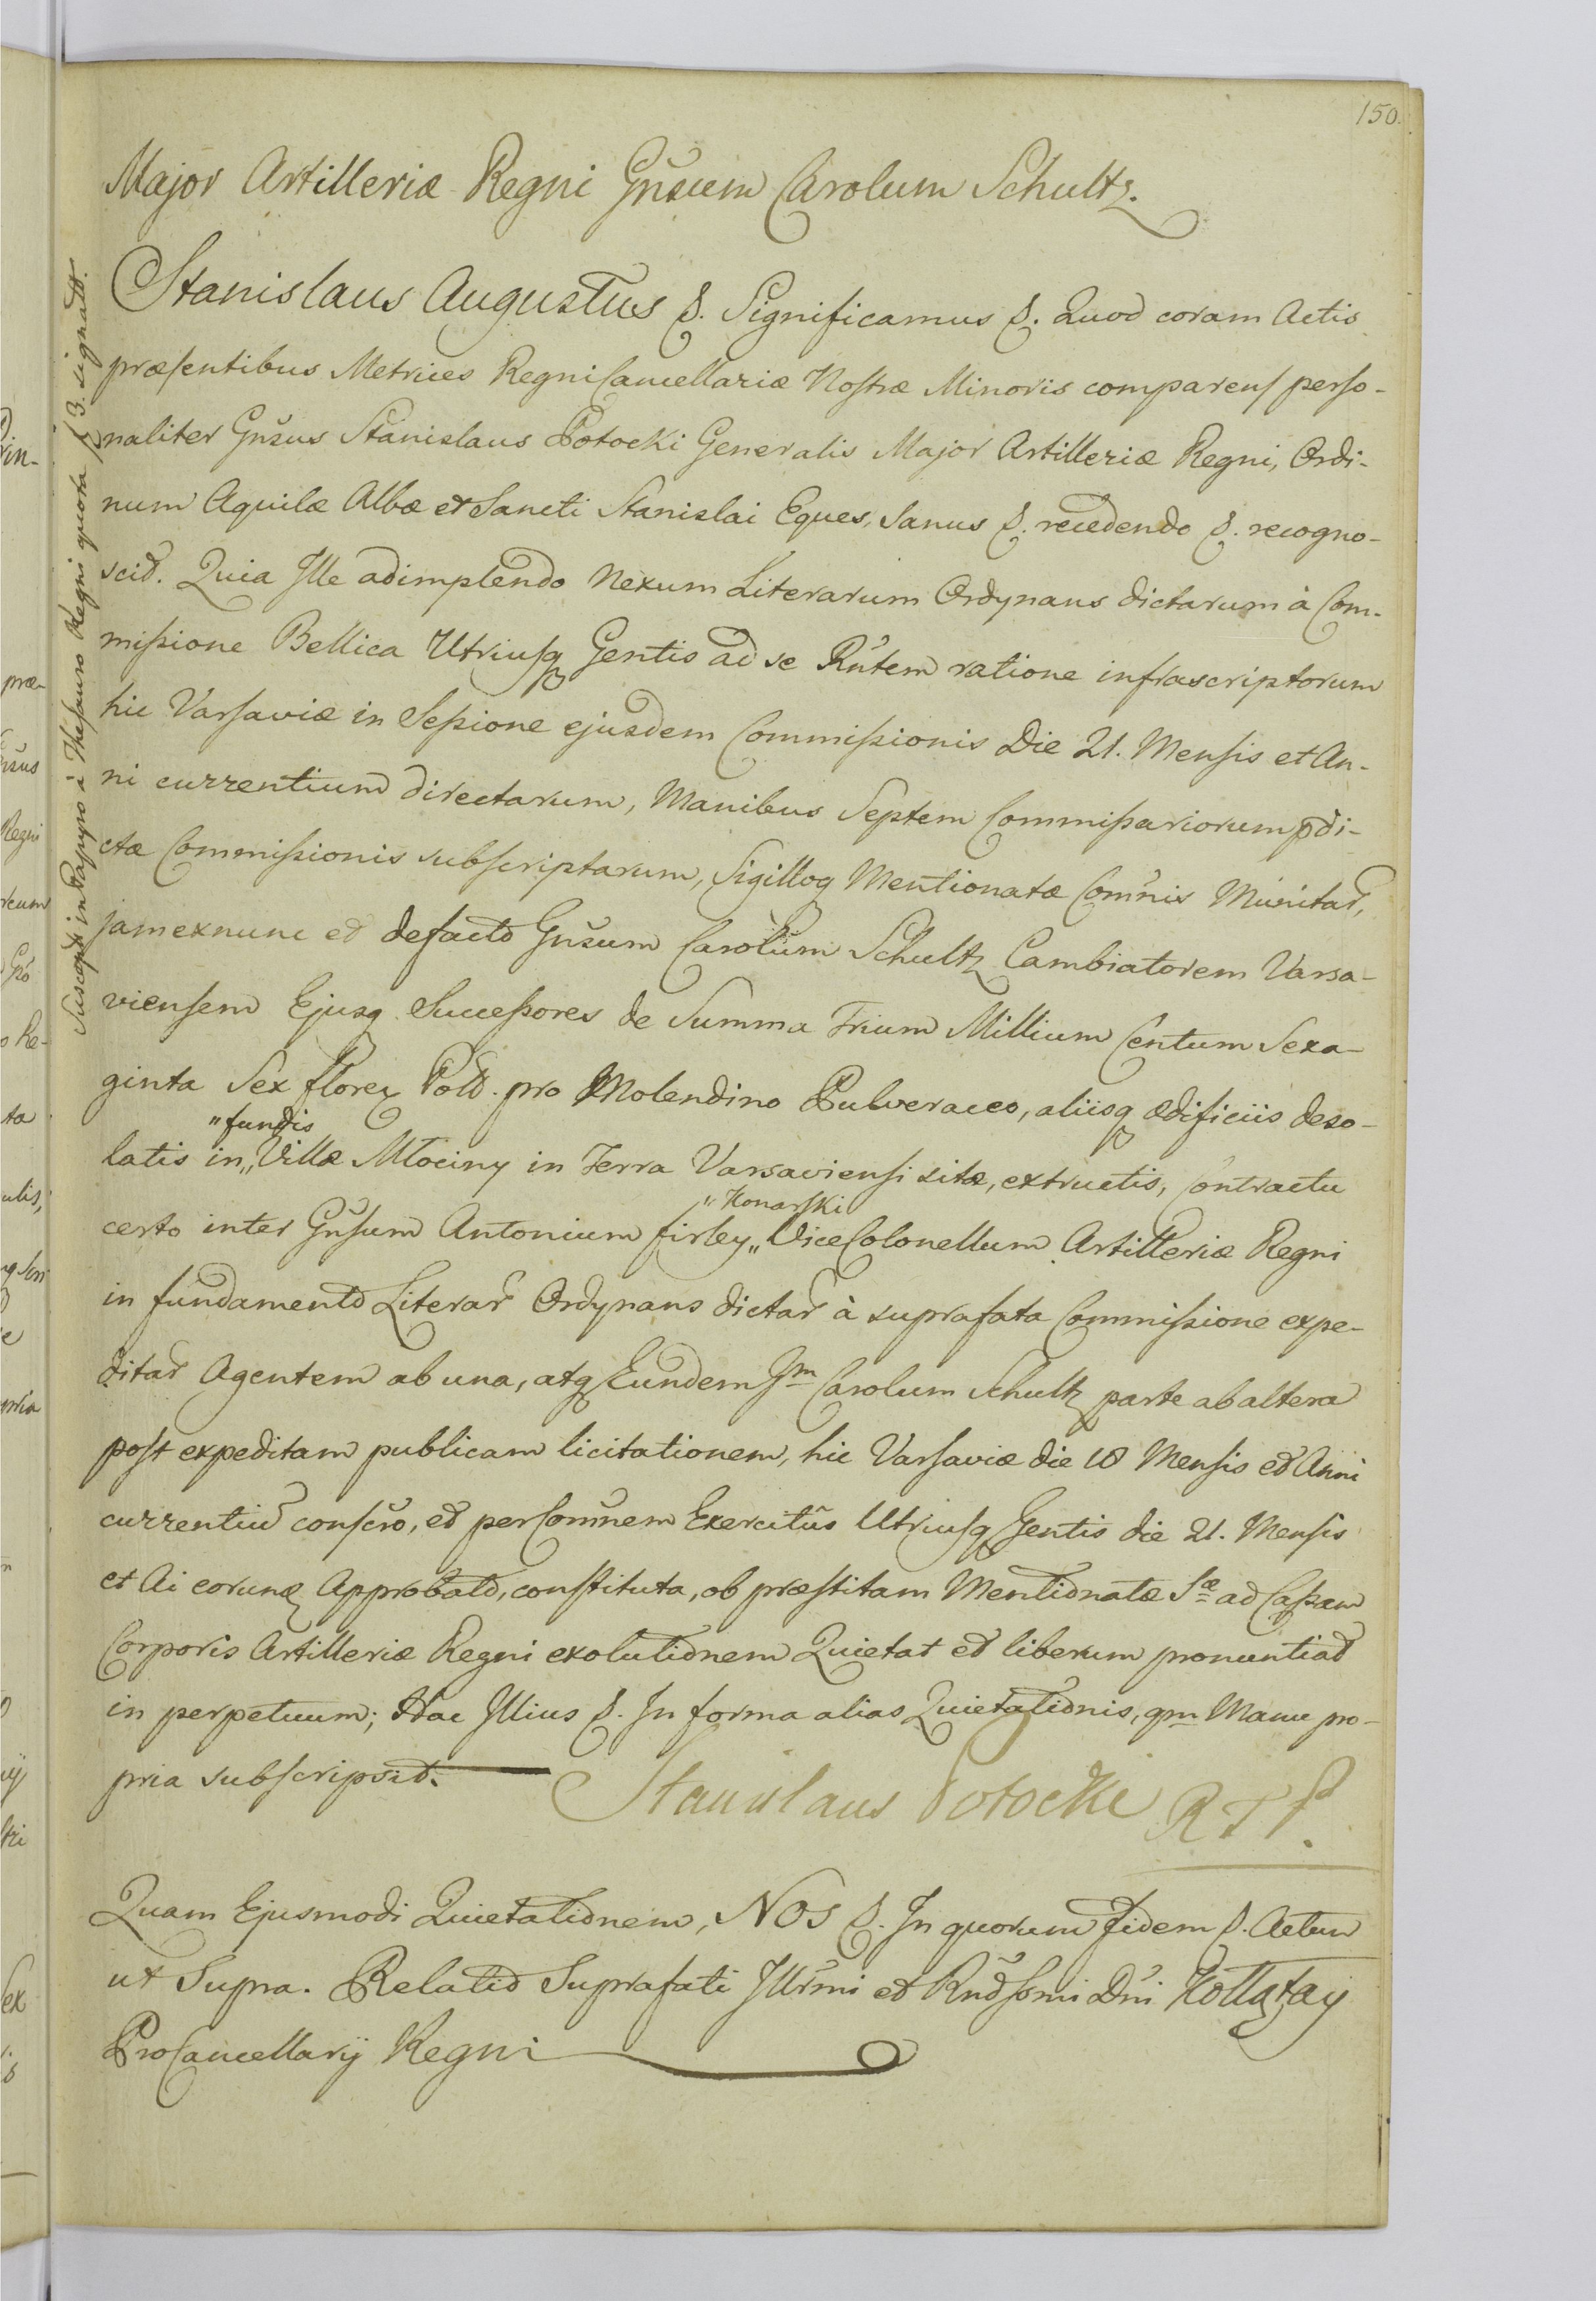 150.
Major Artilleriæ Regni Gnsum Carolum Schultz.
Stanislaus Augustus &. Significamus &. Quod coram Actis
præsentibus Metrices Regni Cancellariæ Nostræ Minoris comparens perso-
naliter Gnsus Stanislaus Potocki Generalis Major Artilleriæ Regni, Ordi-
num Aquilæ Albæ et Sancti Stanislai Eques, Sanus &. recedendo &. recogno-
scit. Quia Ille adimplendo Nexum Literarum Ordynans dictarum à Com-
missione Bellica Utriusq Gentis ad se Rntem ratione infrascriptorum
hic Varsaviæ in Sessione ejusdem Commissionis Die 21. Mensis et An-
ni currentium directarum, Manibus Septem Commissariorum pdi-
ctæ Commissionis subscriptarum, Sigilloq Mentionatæ Comnis Munitar,
jam exnunc et defacto Gnsum Carolum Schultz Cambiatorem Varsa-
viensem Ejusq Successores de Summa Trium Millium Centum Sexa-
ginta Sex florez Poll. pro Molendino Pulveraceo, aliisq ædificiis deso-
"fundis
latis in„ Villæ Młociny in Terra Varsaviensi sitæ, extructis, Contractu
"Konarski
certo inter Gnsum Antonium firley„ ViceColonellum Artilleriæ Regni
in fundamento Literar Ordynans dictar à suprafata Commissione expe-
ditar Agentem ab una, atq Eundem Gm Carolum Schultz parte ab altera
post expeditam publicam licitationem, hic Varsaviæ die 18 Mensis et Anni
currentiu conscro, et per Comnem Exercitûs Utriusq Gentis die 21. Mensis
et Ai eorund Approbato, constituta, ob præstitam Mentionatæ Sæ ad Cassam
Corporis Artilleriæ Regni exolutionem Quietat et liberum pronuntiat
in perpetuum; Hac Illius &. In forma alias Quietationis, qm Manu pro-
pria subscripsit.
Stanislaus Potocki
Quam Ejusmodi Quietationem, NOS &. In quorum fidem &. Actum
ut Supra. Relatio Suprafati Illrmi et Rndssmi Dni Kołłątay
ProCancellarij Regni
Suscepti in Papyro à Thesauro Regni quota f 3. signato.